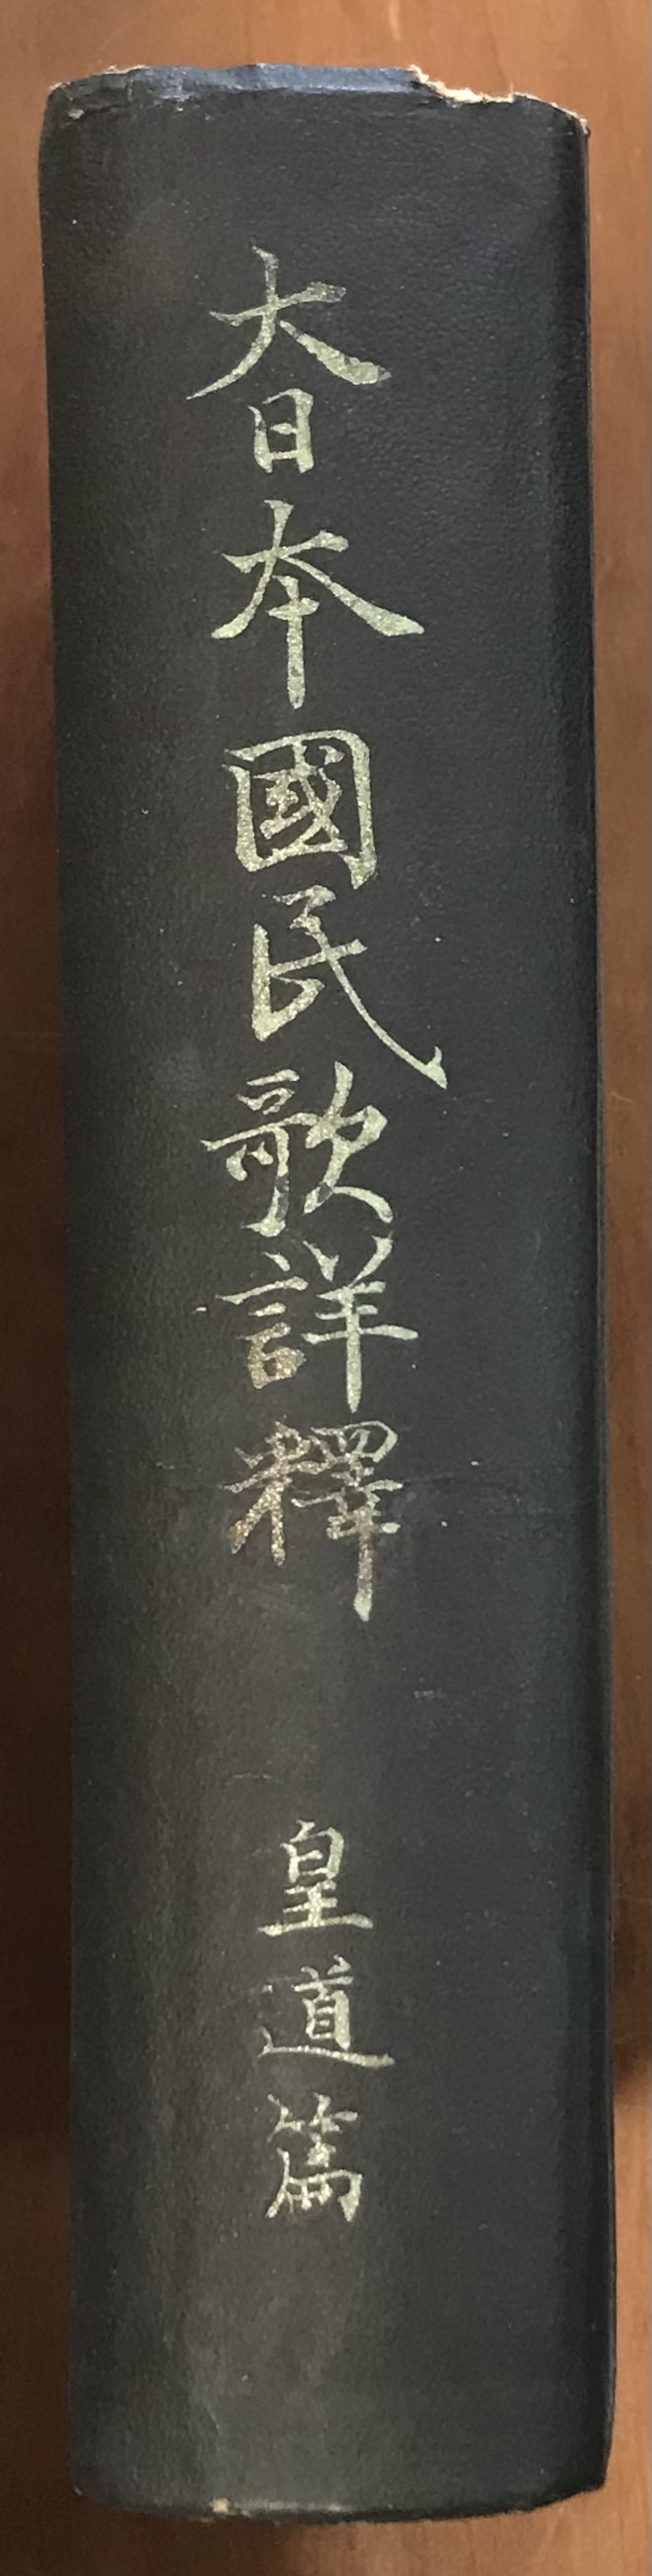 大日本國民歌詳釋
皇道篇